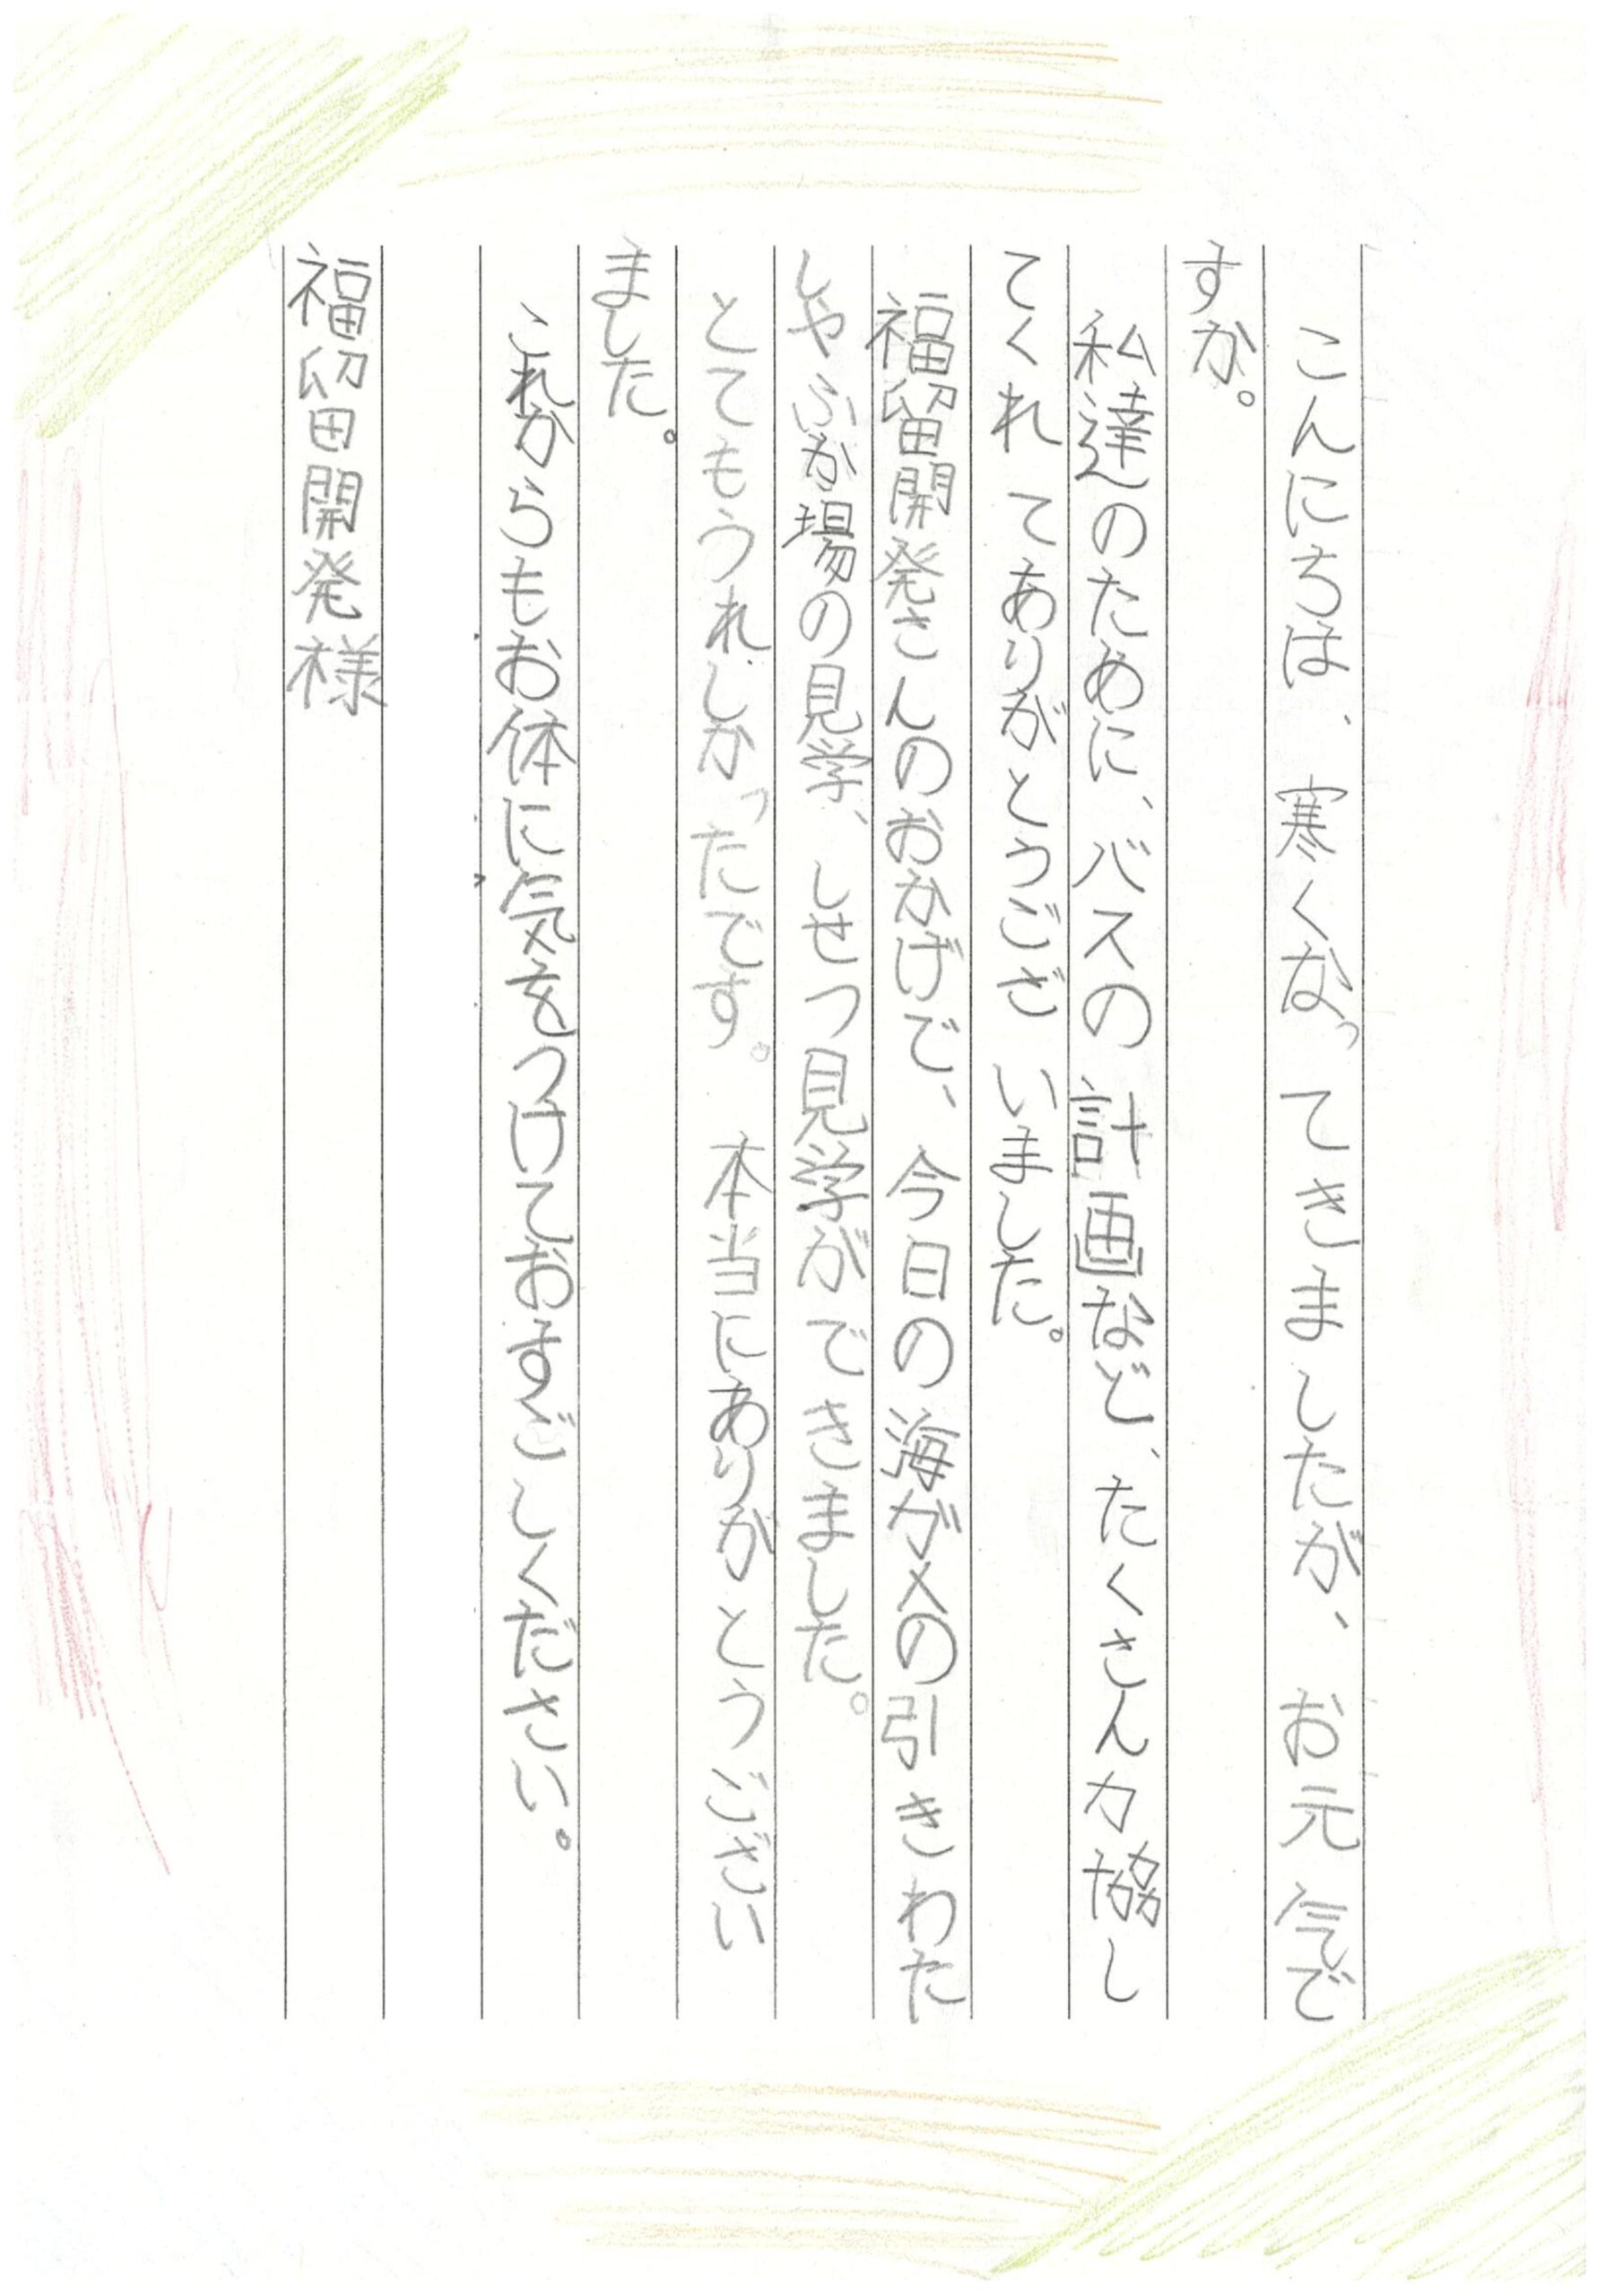 こんにちは、寒くなってきましたが、お元気で
すか。
私達のために、バスの計画など、たくさん力協し
てくれてありがとうございました。
福留開発さんのおかげで、今日の海がメの引きわた
しやふか場の見学、しせつ見学ができました。
とてもうれしかったです。本当にありがとうござい
ました。
これからもお体に気をつけておすごしください。
福留開発様